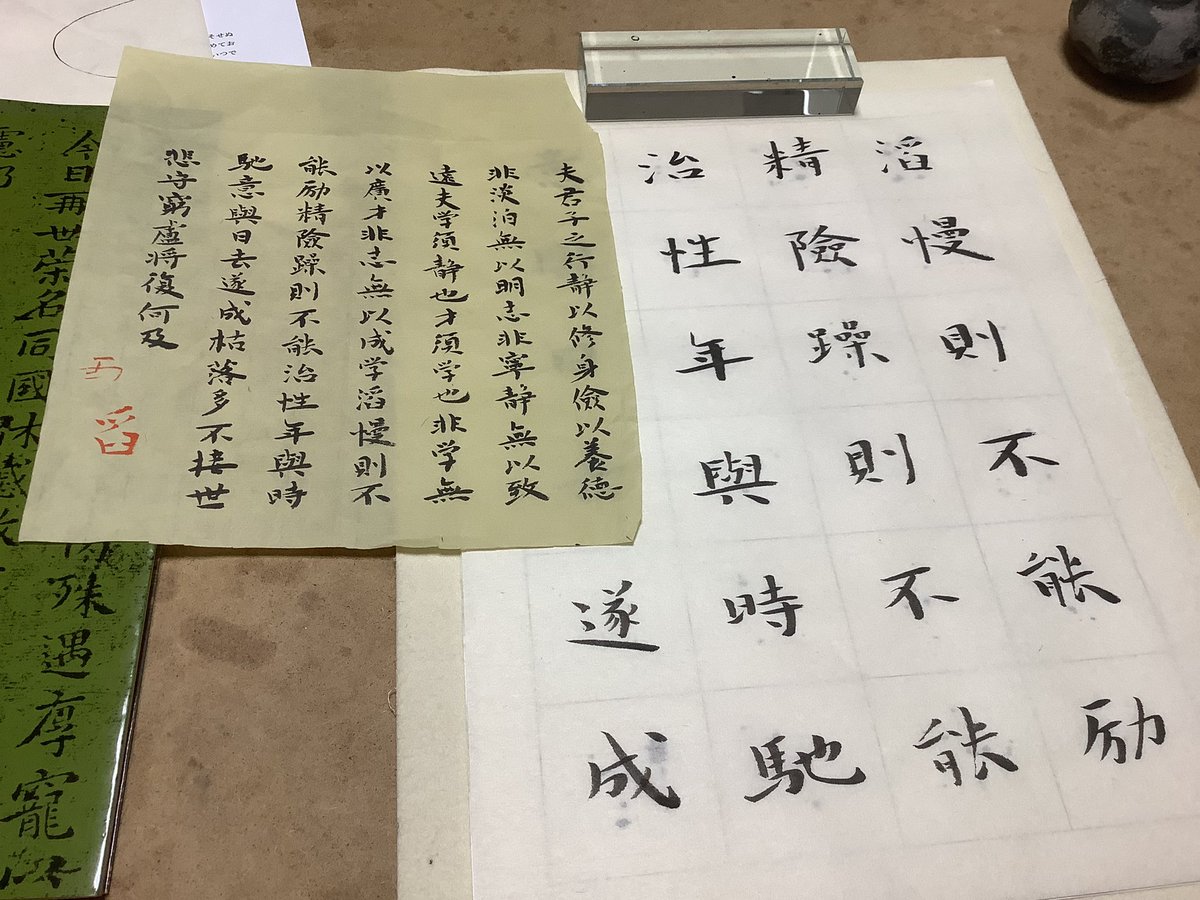 夫君子之行静以修身儉以養德
非淡泊無以明志非寧静無以致
遠夫学須静也才須学也非学無
以廣才非志無以成学滔慢則不
能励精險躁則不能治性年與時
馳意與日去遂成枯落多不接世
悲守窮廬将復何及
滔慢則不能励
精險躁則不能
治性年與時馳
遂成
殊遇厚寵以
今日再世荣名同國休慼
そせぬ
めてお
いつで